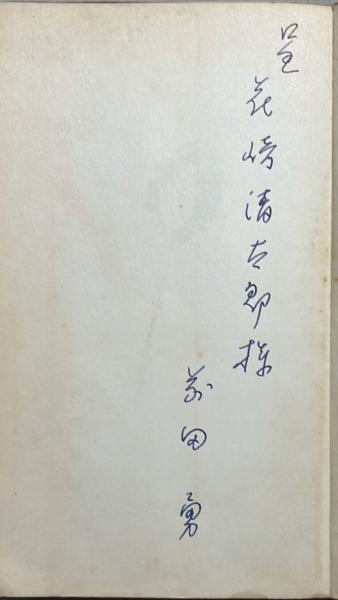 呈
花崎清太郎様
前田 勇